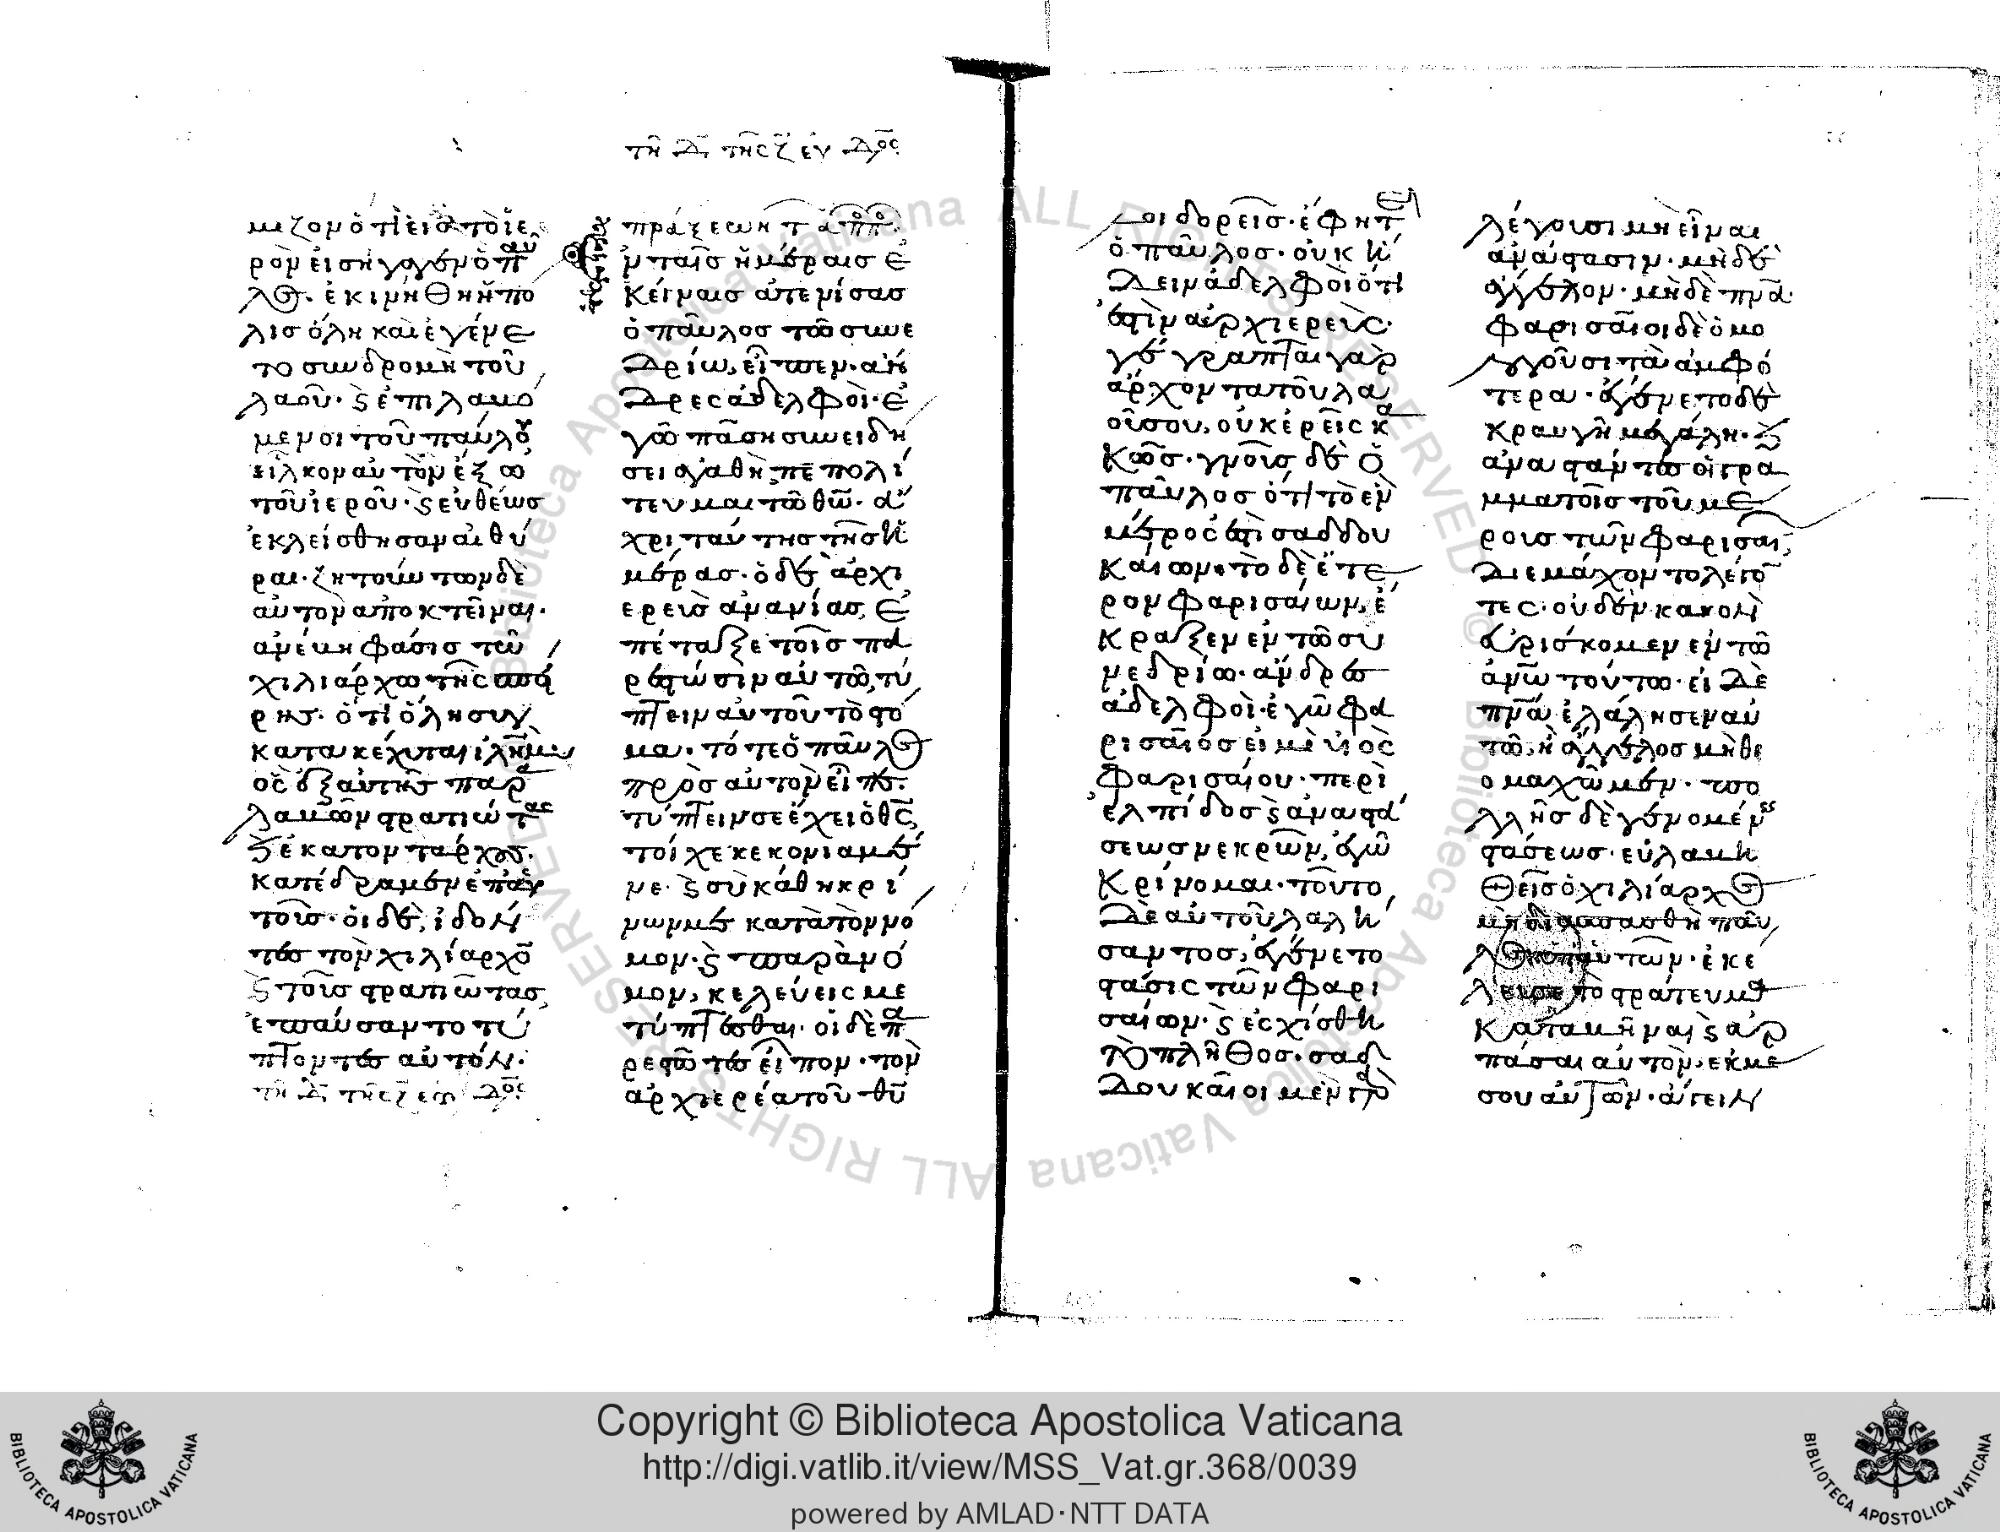 τῆ Δ τῆς ζ ἑβ δος
μιζον ὅτι εἰς τὸ ἱε
ρὸν εἰσήγαγεν ὁ παυ
λος. ἐκινήθη ἡ πο
λις ὅλη καὶ ἐγένε
το συνδρομὴ τοῦ
λαοῦ. ϗ ἐπιλαβο
μενοι τοῦ παύλου
εἷλκον αὐτὸν ἐξω
τοῦ ἱεροῦ. ϗ εὐθέως
ἐκλείσθησαν αἱ θύ
ραι. ζητούντων δὲ
αὐτὸν ἀποκτεῖναι.
ἀνέβη φάσις τῶ
χιλιάρχω τῆς σπεί
ρης. ὅτι ὅλη συγ
κατακέχυται ϊλῆμ
ὃς ἐξαυτῆς παρα
λαβὼν στρατιώτας
ϗ ἑκατοντάρχους.
κατέδραμεν ἐπ αὐ
τοῖς. οἱ δὲ, ἰδόν
τες τὸν χιλίαρχον
ϗ τοῖς στρατιώτας,
ἐπαύσαντο τύ
πτοντες αὐτόν.
τῆ Δ τῆς ζ ἑβ δος
πράξεων τ απ
ἐν ταῖς ἡμέραις ἐ
κείναις ἀτενίσας
ὁ παῦλος τῶ συνε
δρίω, εἶπεν. ἄν
δρες ἀδελφοὶ. ἐ
γὼ πάση συνειδή
σει ἀγαθῆ πεπολί
τευμαι τῶ θω. ἄ
χρι ταύτης τῆς ἡ
μέρας. ὁ δὲ ἀρχι
ερεὺς ἀνανίας, ἐ
πέταξε τοῖς πα
ρεστώσιν αὐτῶ, τύ
πτειν αὐτοῦ τὸ στό
μα. τότε ὁ παῦλος
πρὸς αὐτὸν εἶπε.
τύπτειν σε ἔχει ὁ θς,
τοίχε κεκονιαμέ
νε. ϗ σὺ κάθη κρί
νων με κατὰ τὸν νό
μον. ϗ παρὰ νό
μον, κελεύεις με
τύπτεσθαι. οἱ δὲ πα
ρεστῶτες εἶπον. τὸν
ἀρχιερέα τοῦ θυ
λοιδορεῖς. ἔφη τε
ὁ παῦλος. οὐκ ἤ
δειν ἀδελφοὶ ὅτι
ἐστὶν ἀρχιερεὺς.
γέγραπται γὰρ
ἄρχοντα τοῦ λα
οῦ σου, οὐκ ἐρεῖς κα
κῶς. γνοὺς δὲ ὁ
παῦλος ὅτι τὸ ἓν
μέρος ἐστὶ σαδδου
καίων. τὸ δὲ ἕτε
ρον φαρισαίων, ἔ
κραξεν ἐν τῶ συ
νεδρίω. ἄνδρες
ἀδελφοὶ. ἐγὼ φα
ρισαῖός εἰμι υἱὸς
φαρισαίου. περὶ
ἐλπίδος ϗ ἀναστά
σεως νεκρῶν, ἐγὼ
κρίνομαι. τοῦτο
δὲ αὐτοῦ λαλή
σαντος, ἐγένετο
στάσις τῶν φαρι
σαίων. ϗ ἐσχίσθη
τὸ πλῆθος. σαδ
δουκαῖοι μὲν γὰρ
λέγουσι μὴ εἶναι
ἀνάστασιν. μηδὲ
ἄγγελον. μὴ δὲ πνα.
φαρισαῖοι δὲ ὁμο
λογοῦσι τὰ ἀμφό
τερα. ἐγένετο δὲ
κραυγὴ μεγάλη. ϗ
ἀναστάντες οἱ γρα
μματεῖς τοῦ μέ
ρους τῶν φαρισαί,
διεμάχοντο λέγον
τες. οὐδὲν κακὸν
εὑρίσκομεν ἐν τῶ
ἀνω τούτω. εἰ δὲ
πνα ἐλάλησεν αὐ
τῶ, ἢ ἄγγελος μὴ θε
ομαχῶμεν. πο
λλῆς δὲ γενομένης
στάσεως. εὐλαβη
θεὶς ὁ χιλίαρχος
μὴ διασπασθῆ παῦ
λος ὑπ αὐτῶν. ἐκέ
λευσε το στράτευμα
καταβῆναι ϗ ἁρ
πάσαι αὐτὸν, ἐκ μέ
σου αὐτῶν. ἄγειν
Biblioteca Apostolica Vaticana ALL RIGHTS RESERVED © Biblioteca Apostolica Vaticana ALL RIGHTS RESERVED
BIBLIOTECA APOSTOLICA VATICANA
Copyright © Biblioteca Apostolica Vaticana
http://digi.vatlib.it/view/MSS_Vat.gr.368/0039
powered by AMLAD·NTT DATA
BIBLIOTECA APOSTOLICA VATICANA